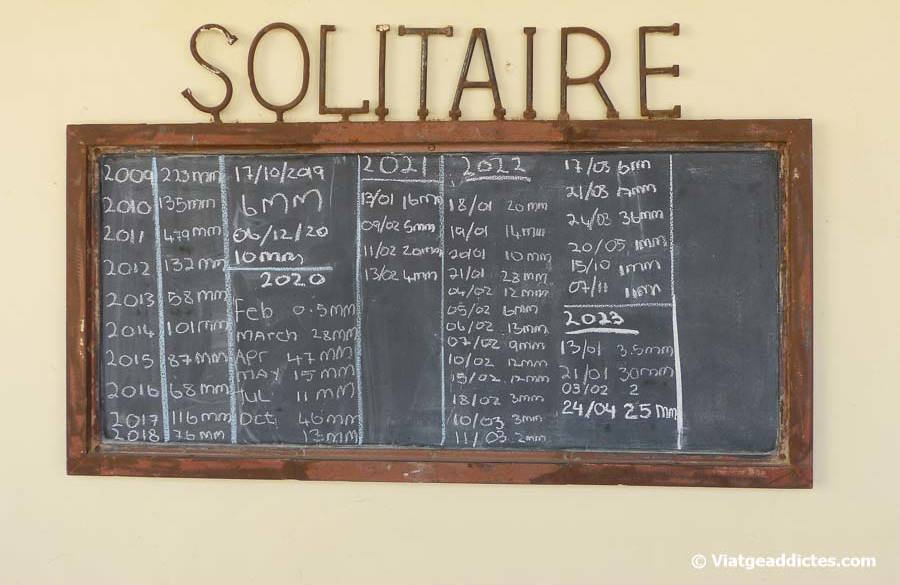 SOLITAIRE
2009 223mm
2010 135mm
2011 479mm
2012 132mm
2013 58mm
2014 101mm
2015 87mm
2016 68mm
2017 116mm
2018 76mm
17/10/2019
6MM
06/12/20
10mm
2020
Feb 0.5mm
MARCH 28mm
APR 47MM
MAY 15mm
JUL 11MM
Oct 46mm
13mm
2021
13/01 16mm
09/02 5mm
11/02 20mm
13/02 4mm
2022
18/01 20mm
19/01 14mm
20/01 10mm
21/01 28mm
04/02 12mm
05/02 6mm
06/02 13mm
07/02 9mm
10/02 12mm
15/02 12mm
18/02 3mm
10/03 3mm
11/03 2mm
17/03 6mm
21/03 17mm
24/03 36mm
20/05 1mm
15/10 1mm
07/11 11mm
2023
13/01 3.5mm
21/01 30mm
03/02 2
24/04 25mm
© Viatgeaddictes.com